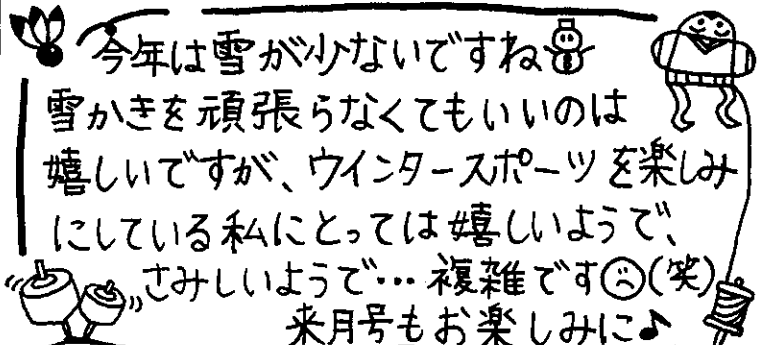 今年は雪が少ないですね
雪かきを頑張らなくてもいいのは
嬉しいですが、ウインタースポーツを楽しみ
にしている私にとっては嬉しいようで、
さみしいようで…複雑です☹(笑)
来月号もお楽しみに♪